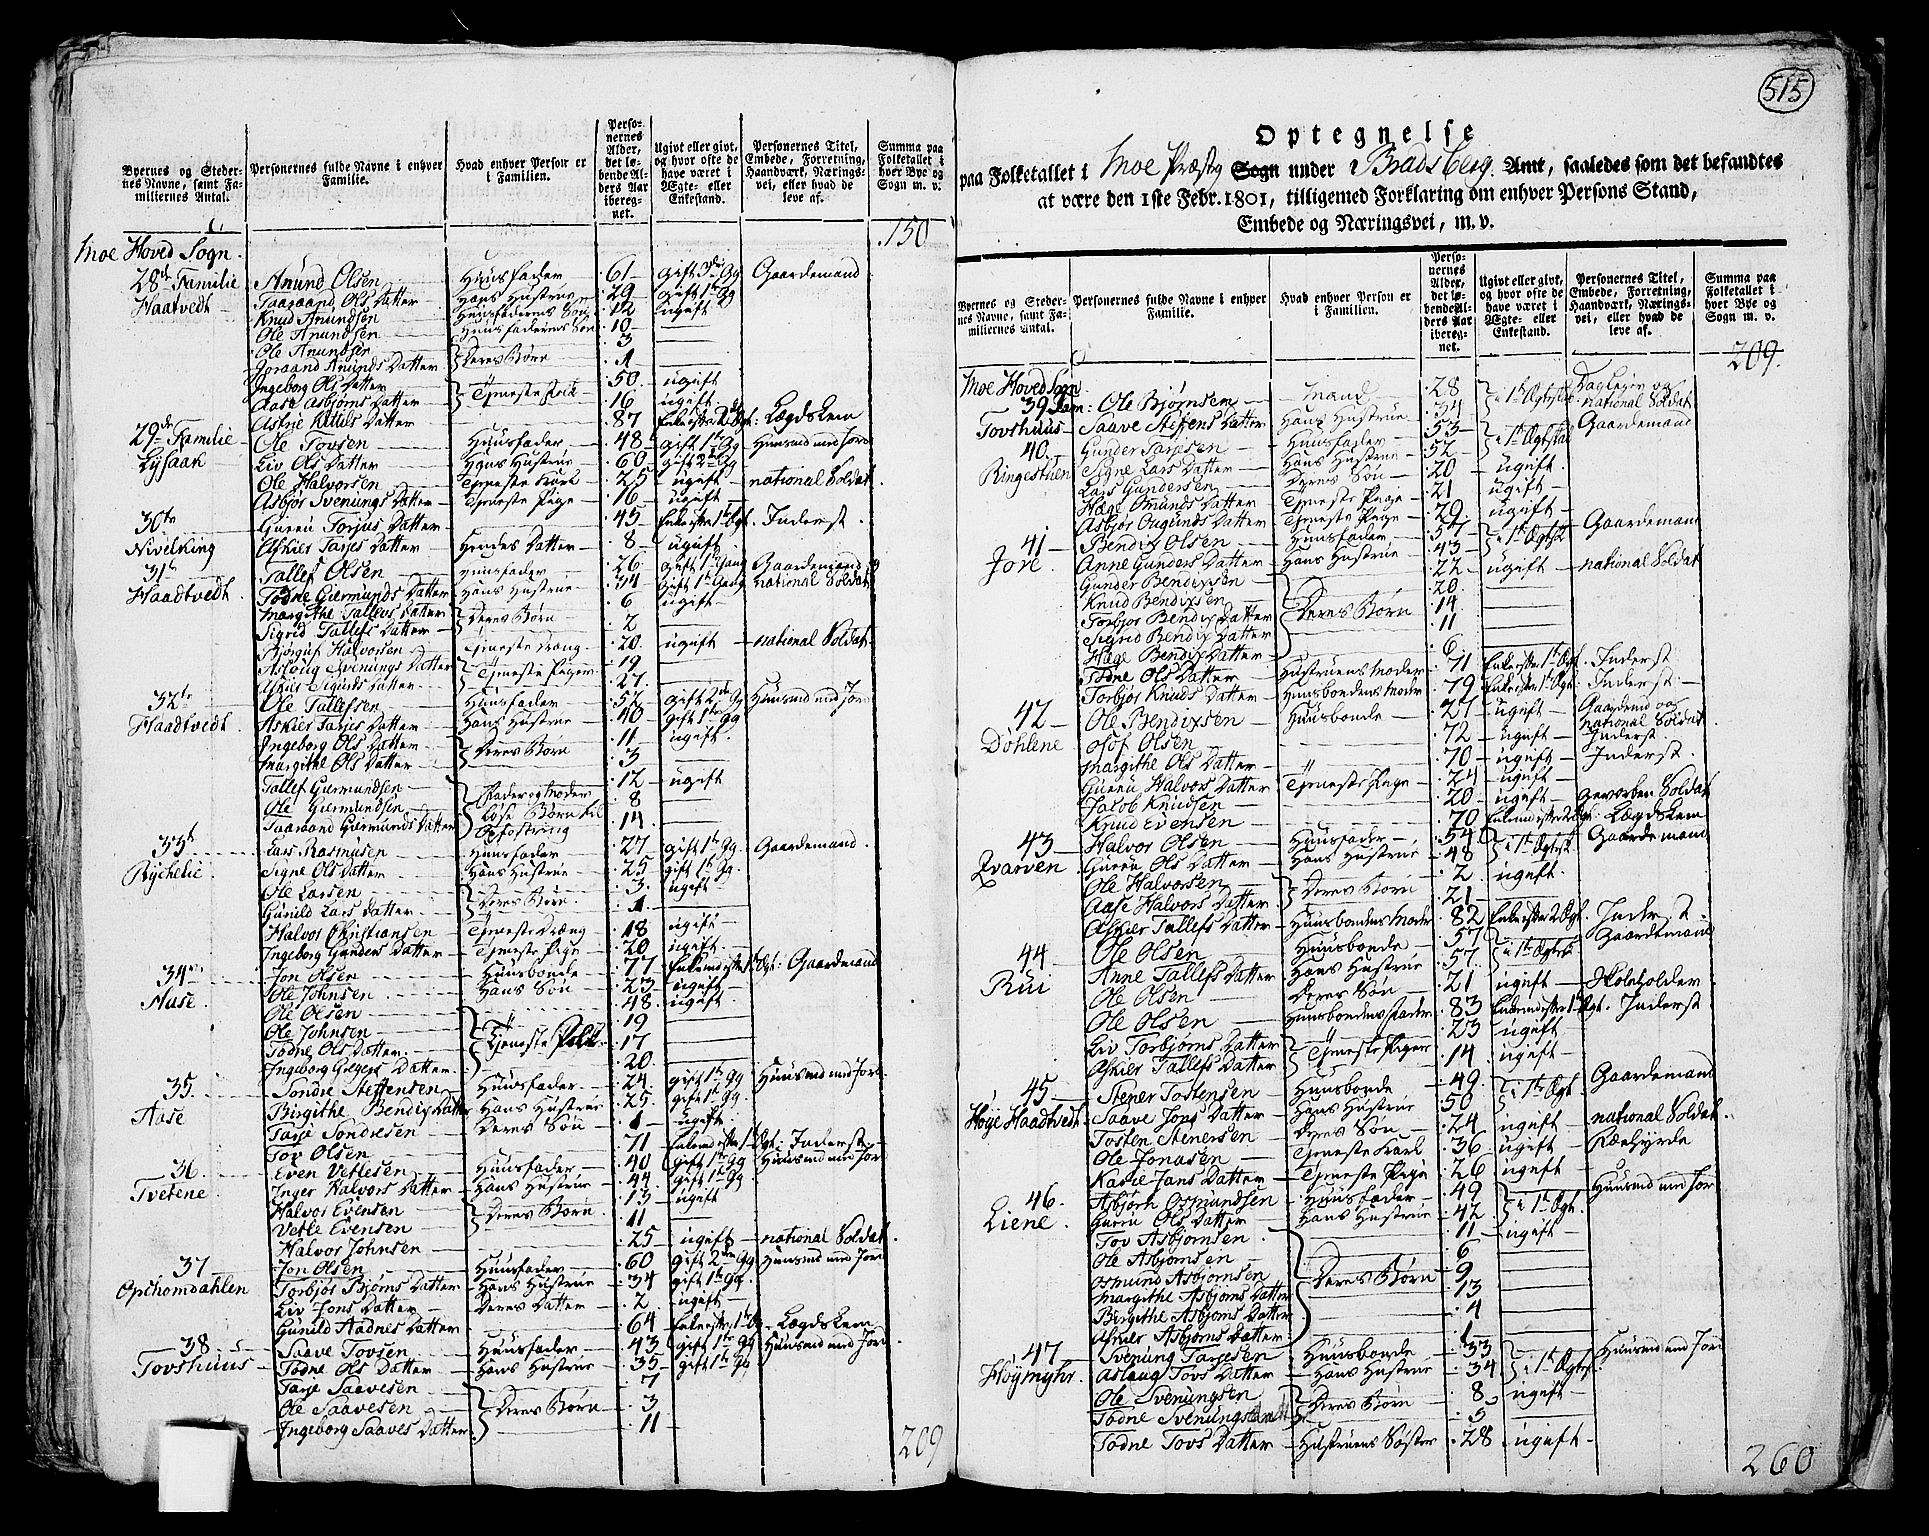 Byernes og Stedernes Navne, samt Familiernes Antal.
Personernes fulde Navne i enhver Familie.
Hvad enhver Person er i Familien.
Personernes Alder, det løbende Alders Aar iberegnet.
Ugivt eller givt, og hvor ofte de have været i Ægte- eller Enkestand.
Personernes Titel, Embede, Forretning, Haandværk, Næringsvei, eller hvad de leve af.
Summa paa Folketallet i hver Bye og Sogn m. v.
150
Moe Hoved Sogn.
28de Familie Anund Olsen Huusfader 61 gift 3die Gg Gaardemand
Haatvedt Taaraand Ols Datter Hans Hustrue 29 gift 1te Gg
Knud Anundsen Huusfaderens Søn 12 ugift
Ole Anundsen Huusfaderens Søn 10
Ole Anundsen Deres Børn 3
Joraand Anunds Datter 1
Ingeborg Ols Datter Tjeneste Folk 50 ugift
Aase Asbjørns Datter 16 ugift
Astrie Kittils Datter 87 Lægdslem
29de Familie Ole Tovsen Huusfader 48 gift 1te Gg Huusmd med Jord
Lysaak Liv Ols Datter Hans Hustrue 60 gift 2den Gg
Ole Halvorsen Tjeneste Karl 25 ugift national Soldat
Asbjør Svenungs Datter Tjeneste Pige 16 ugift
30te Guroe Torjus Datter 45 Inderst
Nivelking Askier Tarjes Datter Hendes Datter 8 ugift
31te Tallef Olsen Huusfader 26 gift 1te Gang Gaardemand og
Haadtvedt Todne Giermunds Datter Hans Hustrue 34 gift 1te Gang national Soldat
Margithe Tallevs Datter Deres Børn 6 ugift
Sigrid Tallefs Datter 2
Bjørguf Halvorsen Tjeneste Dreng 20 ugift national Soldat
Asloug Svenungs Datter Tjeneste Piger 19
Askier Sigurds Datter 27
32te Ole Tallefsen Huusfader 57 gift 2den Gg Huusmd med Jord
Haadtvedt Askier Tarjes Datter Hans Hustrue 40 gift 1te Gg
Ingeborg Ols Datter Deres Børn 11 ugift
Margithe Ols Datter 3
Tallef Giermundsen Fader og Moder 12 ugift
Ole Giermundsen løse Børn til 8
Taaraand Giermunds Datter Opfostring 14
33te Lars Rasmusen Huusfader 27 gift 1te Gg Gaardemand
Rychelie Signe Ols Datter Hans Hustrue 25 gift 1te Gg
Ole Larsen Deres Børn 3 ugift
Gunild Lars Datter 1
Halvor Christiansen Tjeneste Dreng 18 ugift
Ingeborg Gunders Datter Tjeneste Pige 20 ugift
34de Jon Olsen Huusbonde 77 Gaardemand
Aase Ole Johnsen Hans Søn 23 ugift
Ole Olsen 48 ugift
Ole Johnsen Tjeneste Folk 19
Todne Ols Datter 17
Ingeborg Gregers Datter 20
35. Sondre Steffensen Huusfader 24 gift 1te Gg Huusmd med Jord
Aase Birgithe Bendix Datter Hans Hustrue 25 gift 1te Gg
Tarje Sondresen Deres Søn 1 ugift
Tov Olsen 71 Inderst
36 Even Vetlesen Huusfader 40 gift 1te Gg Huusmd med Jor
Tvetene Inger Halvors Datter Hans Hustrue 44 gift 1te Gg
Halvor Evensen Deres Børn 13 ugift
Vetle Evensen 11
Halvor Johnsen 25 ugift national Soldat
37 Jon Olsen Huusfader 60 gift 2den Gg Huusmd med Jord
Opchomdahlen Torbjør Bjørns Datter Hans Hustrue 34 gift 1te Gg
Liv Jons Datter Deres Datter 2 ugift
Gunild Aadnes Datter 64 Lægdslem
38 Saave Tovsen Huusfader 43 gift 1te Gg Huusmd med Jord
Tovshuus Todne Ols Datter Hans Hustrue 35 gift 1te Gg
Tarje Saavesen 7
Ole Saavesen Deres Børn 3
Ingeborg Saaves Datter 11
209
515
Optegnelse
paa Folketallet i Moe Præstg Sogn under Bradsberg Amt, saaledes som det befandtes
at være den 1ste Febr. 1801, tilligemed Forklaring om enhver Persons Stand,
Embede og Næringsvei, m. v.
Byernes og Stedernes Navne, samt Familiernes Antal.
Personernes fulde Navne i enhver Familie.
Hvad enhver Person er i Familien.
Personernes Alder, det løbende Alders Aar iberegnet.
Ugivt eller givt, og hvor ofte de have været i Ægte- eller Enkestand.
Personernes Titel, Embede, Forretning, Haandværk, Næringsvei, eller hvad de leve af.
Summa paa Folketallet i hver Bye og Sogn m. v.
209.
Moe Hoved Sogn
39 Fam: Ole Bjørnsen Mand 28 national Soldat
Tovshuus Saave Steffens Datter Hans Hustrue 34
40. Gunder Tarjesen Huusfader 53 Gaardemand
Ringestuen Signe Lars Datter Hans Hustrue 52
Lars Gundersen Deres Søn 20 ugift
Hæge Omunds Datter Tjeneste Pige 21 ugift
Asbjør Ougunds Datter Tjeneste Pige 29 ugift
41 Bendix Olsen Huusfader 57 Gaardemand
Jore Anne Gunders Datter Hans Hustrue 43
Gunder Bendixsen 22 ugift national Soldat
Knud Bendixsen Deres Børn 20
Torbjør Bendix Datter 14
Sigrid Bendix Datter 11
Hæge Bendix Datter 6
Todne Ols Datter Hustruens Moder 71 Inderst
Torbjør Knuds Datter Huusbondens Moder 79 Inderst
42 Ole Bendixsen Huusbonde 27 ugift Gaardemd og national Soldat
Dohlene Olof Olsen 72 ugift Inderst
Margithe Ols Datter 70 ugift Inderst
Guroe Halvors Datter Tjeneste Pige 24 ugift
Jacob Knudsen 20 ugift geworben Soldat
Knud Evensen 70 Lægdslem
43 Halvor Olsen Huusfader 54 Gaardemand
Qvarven Guroe Ols Datter Hans Hustrue 48
Ole Halvorsen Deres Børn 2 ugift
Aase Halvors Datter 21
Askier Tallefs Datter Huusbondens Moder 82 Inderst
44 Ole Olsen Huusbonde 57 Gaardemand
Rui Anne Tallefs Datter Hans Hustrue 57
Ole Olsen Deres Søn 21 ugift Skoleholder
Ole Olsen Huusbondens Fader 83 Inderst
Liv Torbjørns Datter Tjeneste Piger 23 ugift
Askier Tallefs Datter 14 ugift
45 Stener Tostensen Huusbonde 49 Gaardemand
Høye Haadtvedt Saave Jons Datter Hans Hustrue 50
Tosten Stenersen Deres Søn 24 ugift national Soldat
Ole Jonasen Tjeneste Karl 36 ugift
Karie Jans Datter Tjeneste Pige 26 ugift
46 Asbjørn Osmundsen Huusfader 49 Huusmd med Jor
Liene Guroe Ols Datter Hans Hustrue 42
Tov Asbjørnsen 11 ugift
Ole Asbjørnsen 6
Osmund Asbjørnsen Deres Børn 9
Margithe Asbjørns Datter 13
Birgithe Asbjørns Datter 4
Askier Asbjørns Datter 1
47 Svenung Tarjesen Huusbonde 33 Huusmd med Jord
Høymyhr Aslaug Tovs Datter Hans Hustrue 34
Ole Svenungsen Deres Børn 8 ugift
Todne Svenungsdatter 5
Todne Tovs Datter Hustruens Søster 28 ugift
260